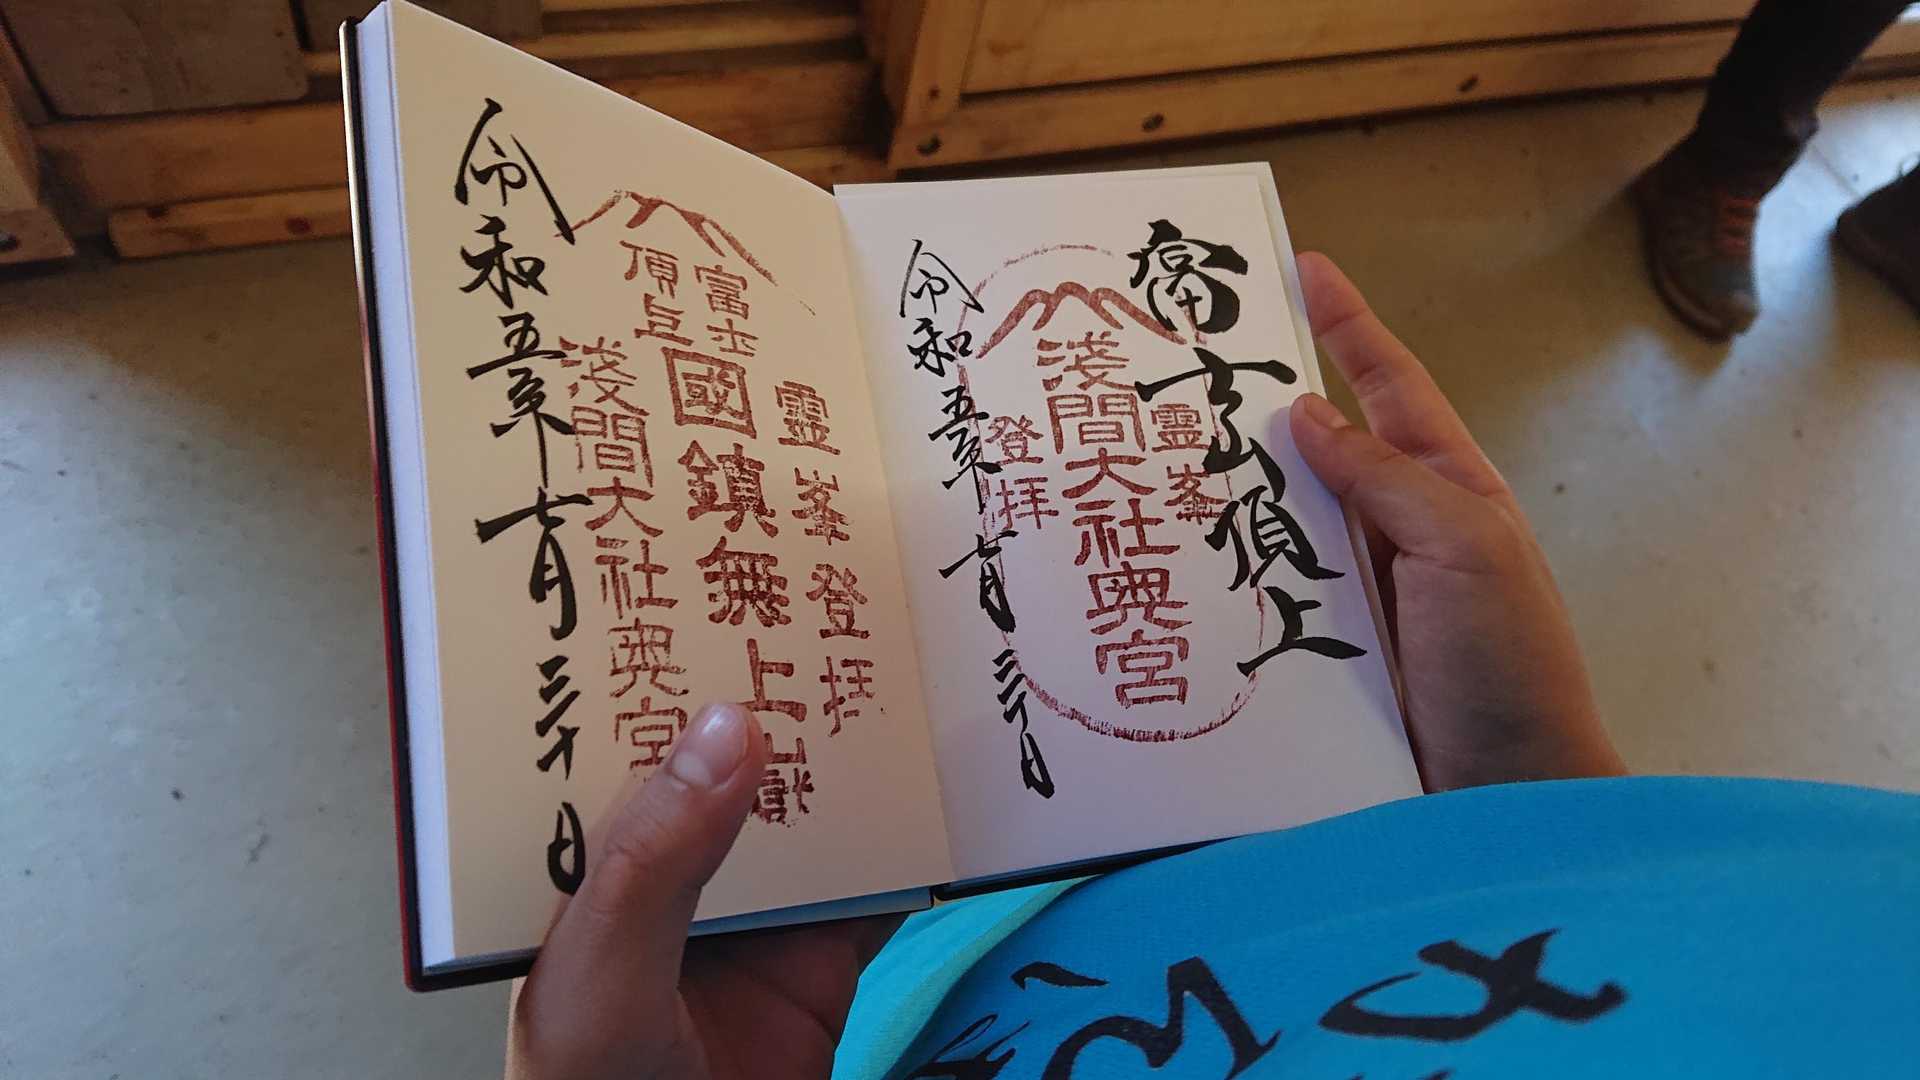 富士頂上
靈峯
淺間大社奥宮
登拝
令和五年七月三十日
靈峯登拝
富士
頂上
國鎮無上嶽
淺間大社奥宮
令和五年七月三十日